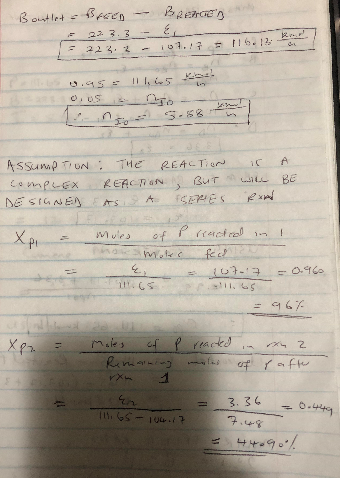 B outlet = B FEED - B REACTED
= 223.3 - ξ1
= 223.3 - 107.17 = 116.13 kmol/h
0.95 = 111.65 kmol/h
0.05 = n I0
∴ n I0 = 5.88 kmol/h
ASSUMPTION: THE REACTION IS A
COMPLEX REACTION, BUT WILL BE
DESIGNED AS A SERIES RXN
XP1 = moles of P reacted in 1 / moles fed
= ξ1 / 111.65 = 107.17 / 111.65 = 0.960
= 96%
XP2 = moles of P reacted in rxn 2 / Remaining moles of P after rxn 1
= ξ2 / 111.65 - 104.17 = 3.36 / 7.48 = 0.449
= 44.90%